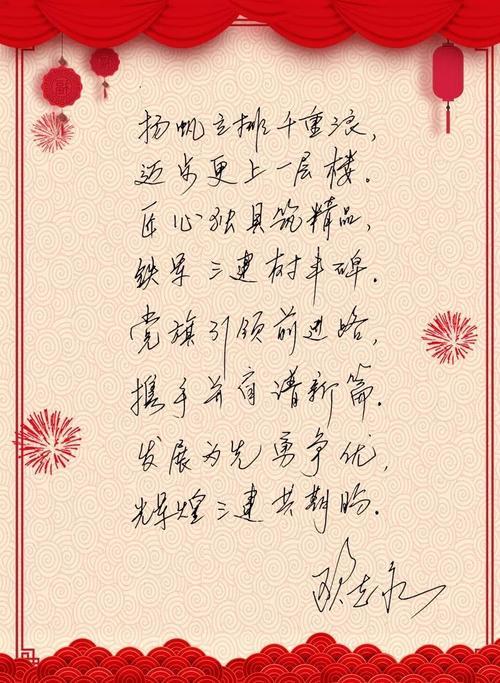 扬帆立排千重浪，
迈步更上一层楼。
匠心独具筑精品，
铁军三建树丰碑．
党旗引领前进路，
携手并肩谱新篇．
发展为先勇争优，
辉煌三建共期盼．